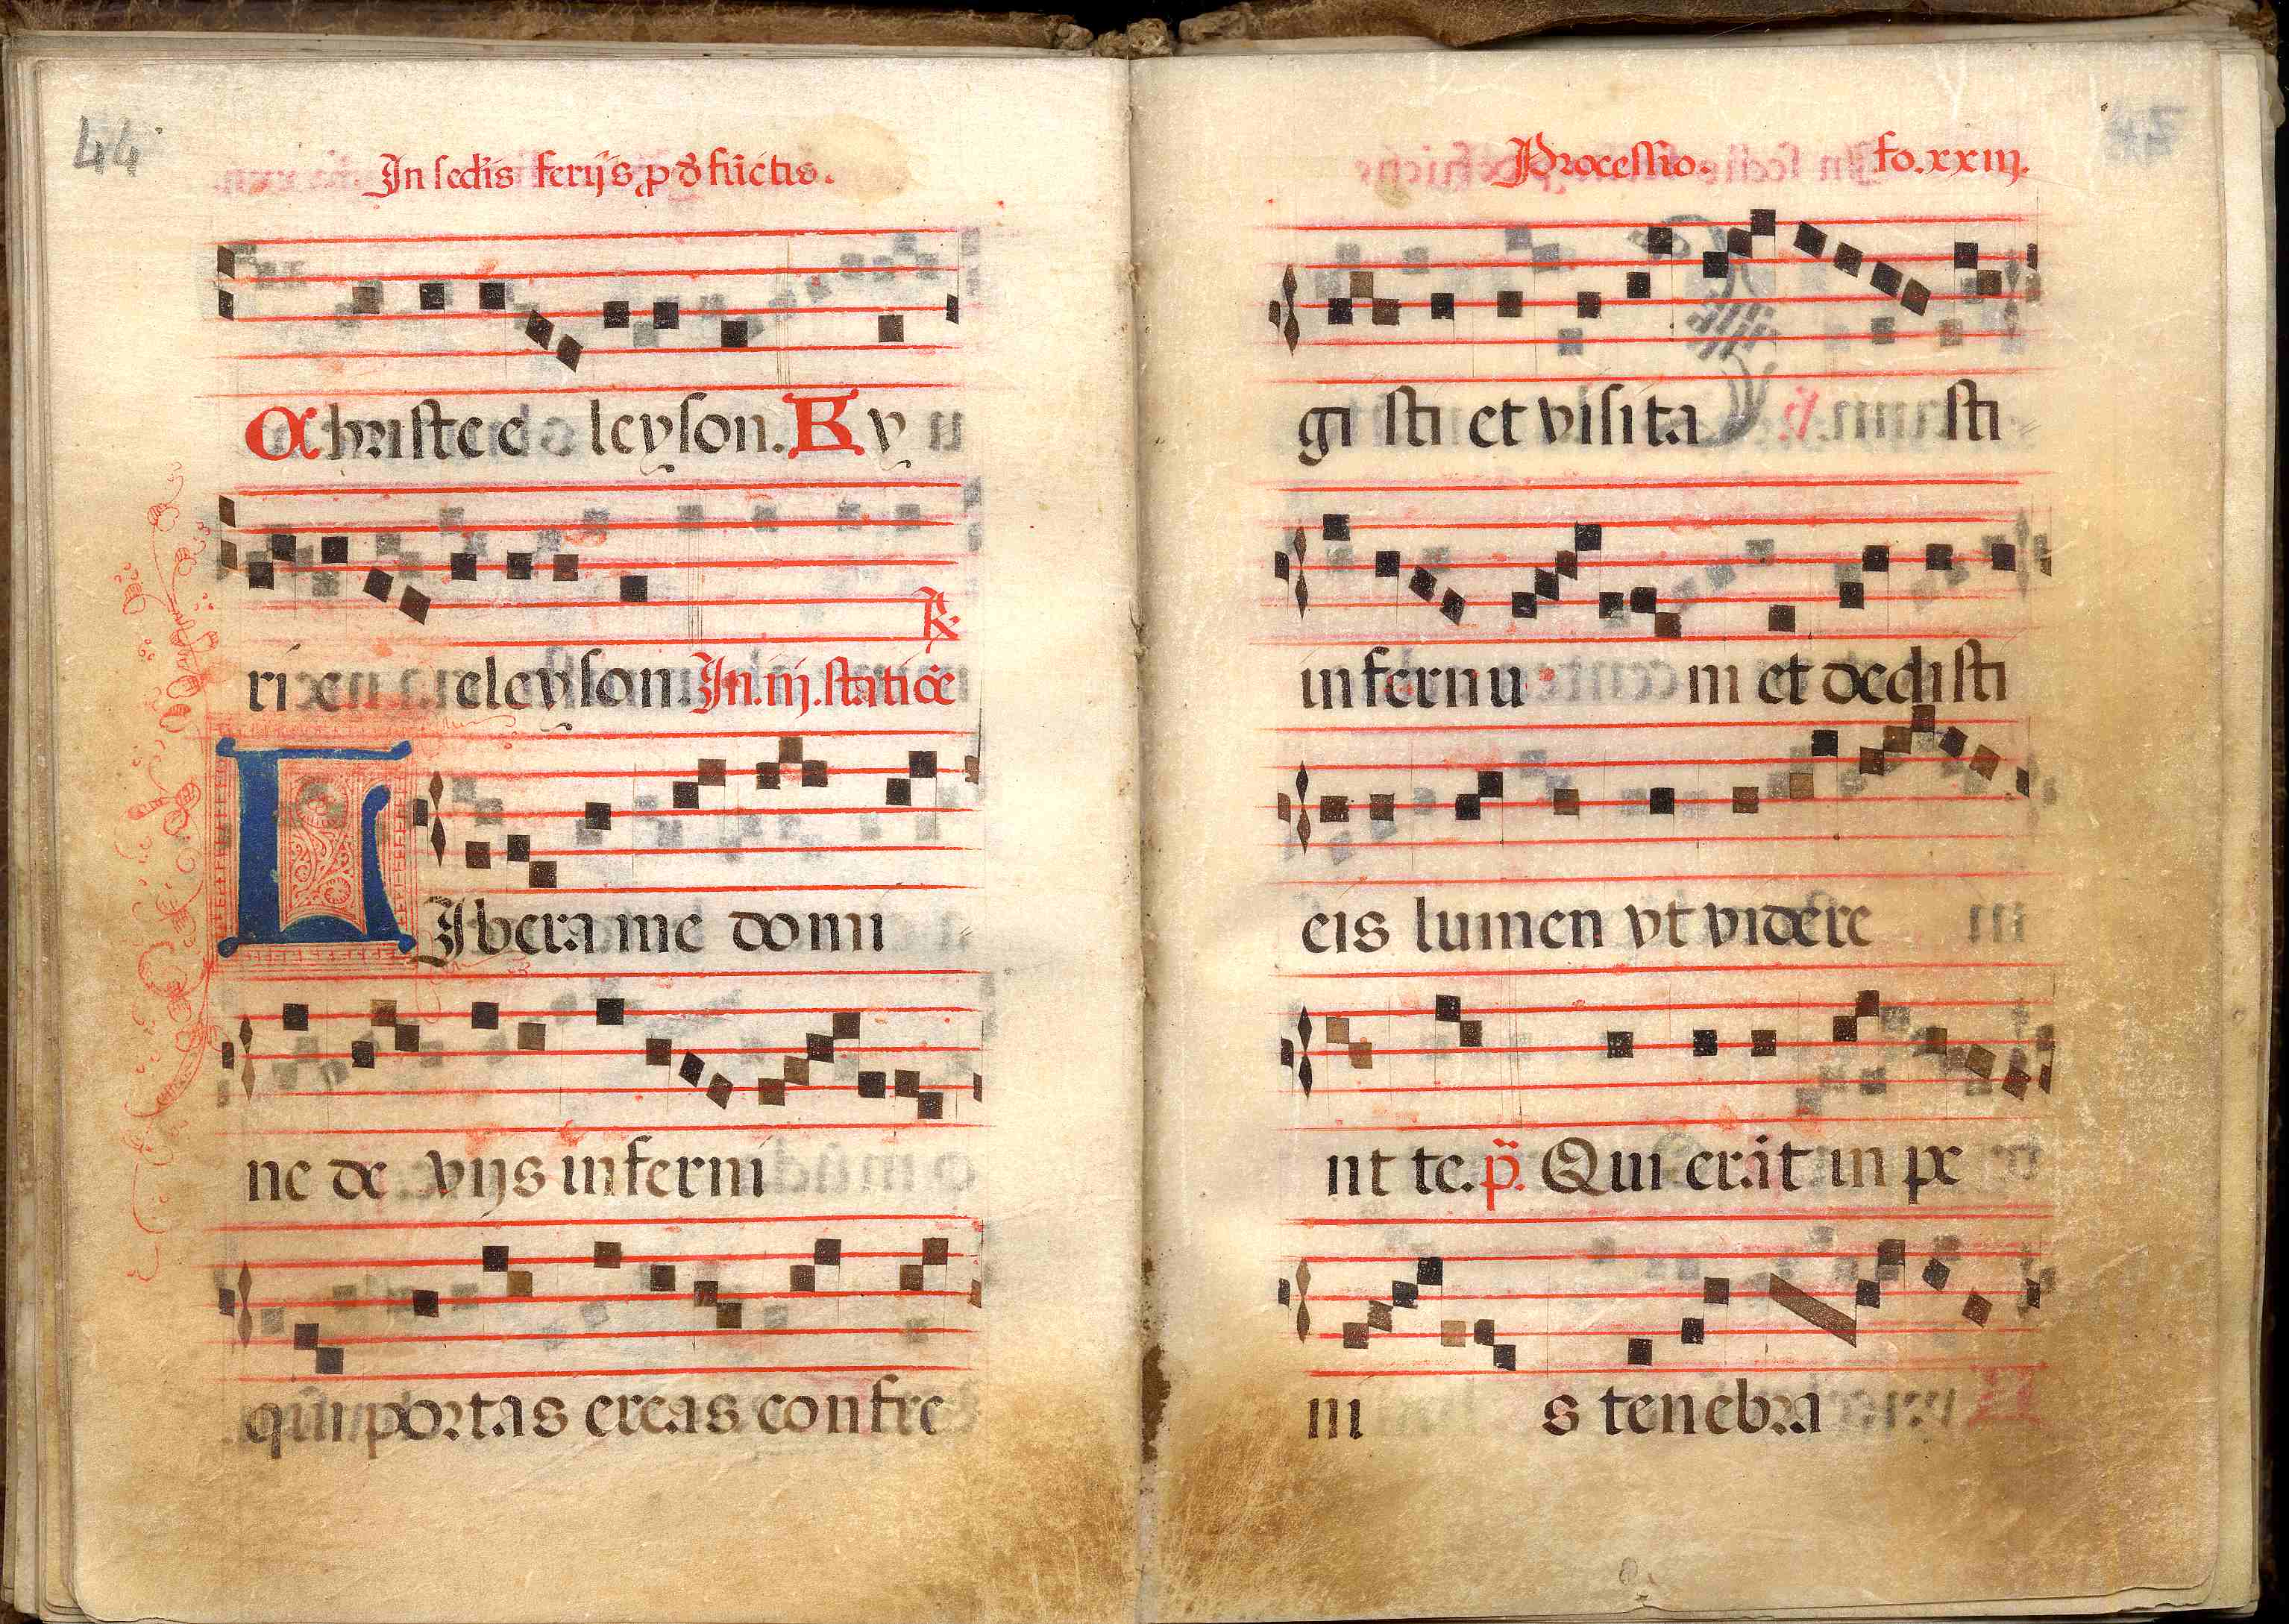 44
In sedis ferijs p defuctis.
Christe e leyson. Ky
rie eleyson. In.iij.statioe
R.
LIbera me domi
ne de vijs inferni
qui portas ereas confre
45
Processio. fo.xxiij.
gi sti et visita sti
infernu m et dedisti
eis lumen vt videre
nt te. p. Qui erat in pe
ni s tenebra